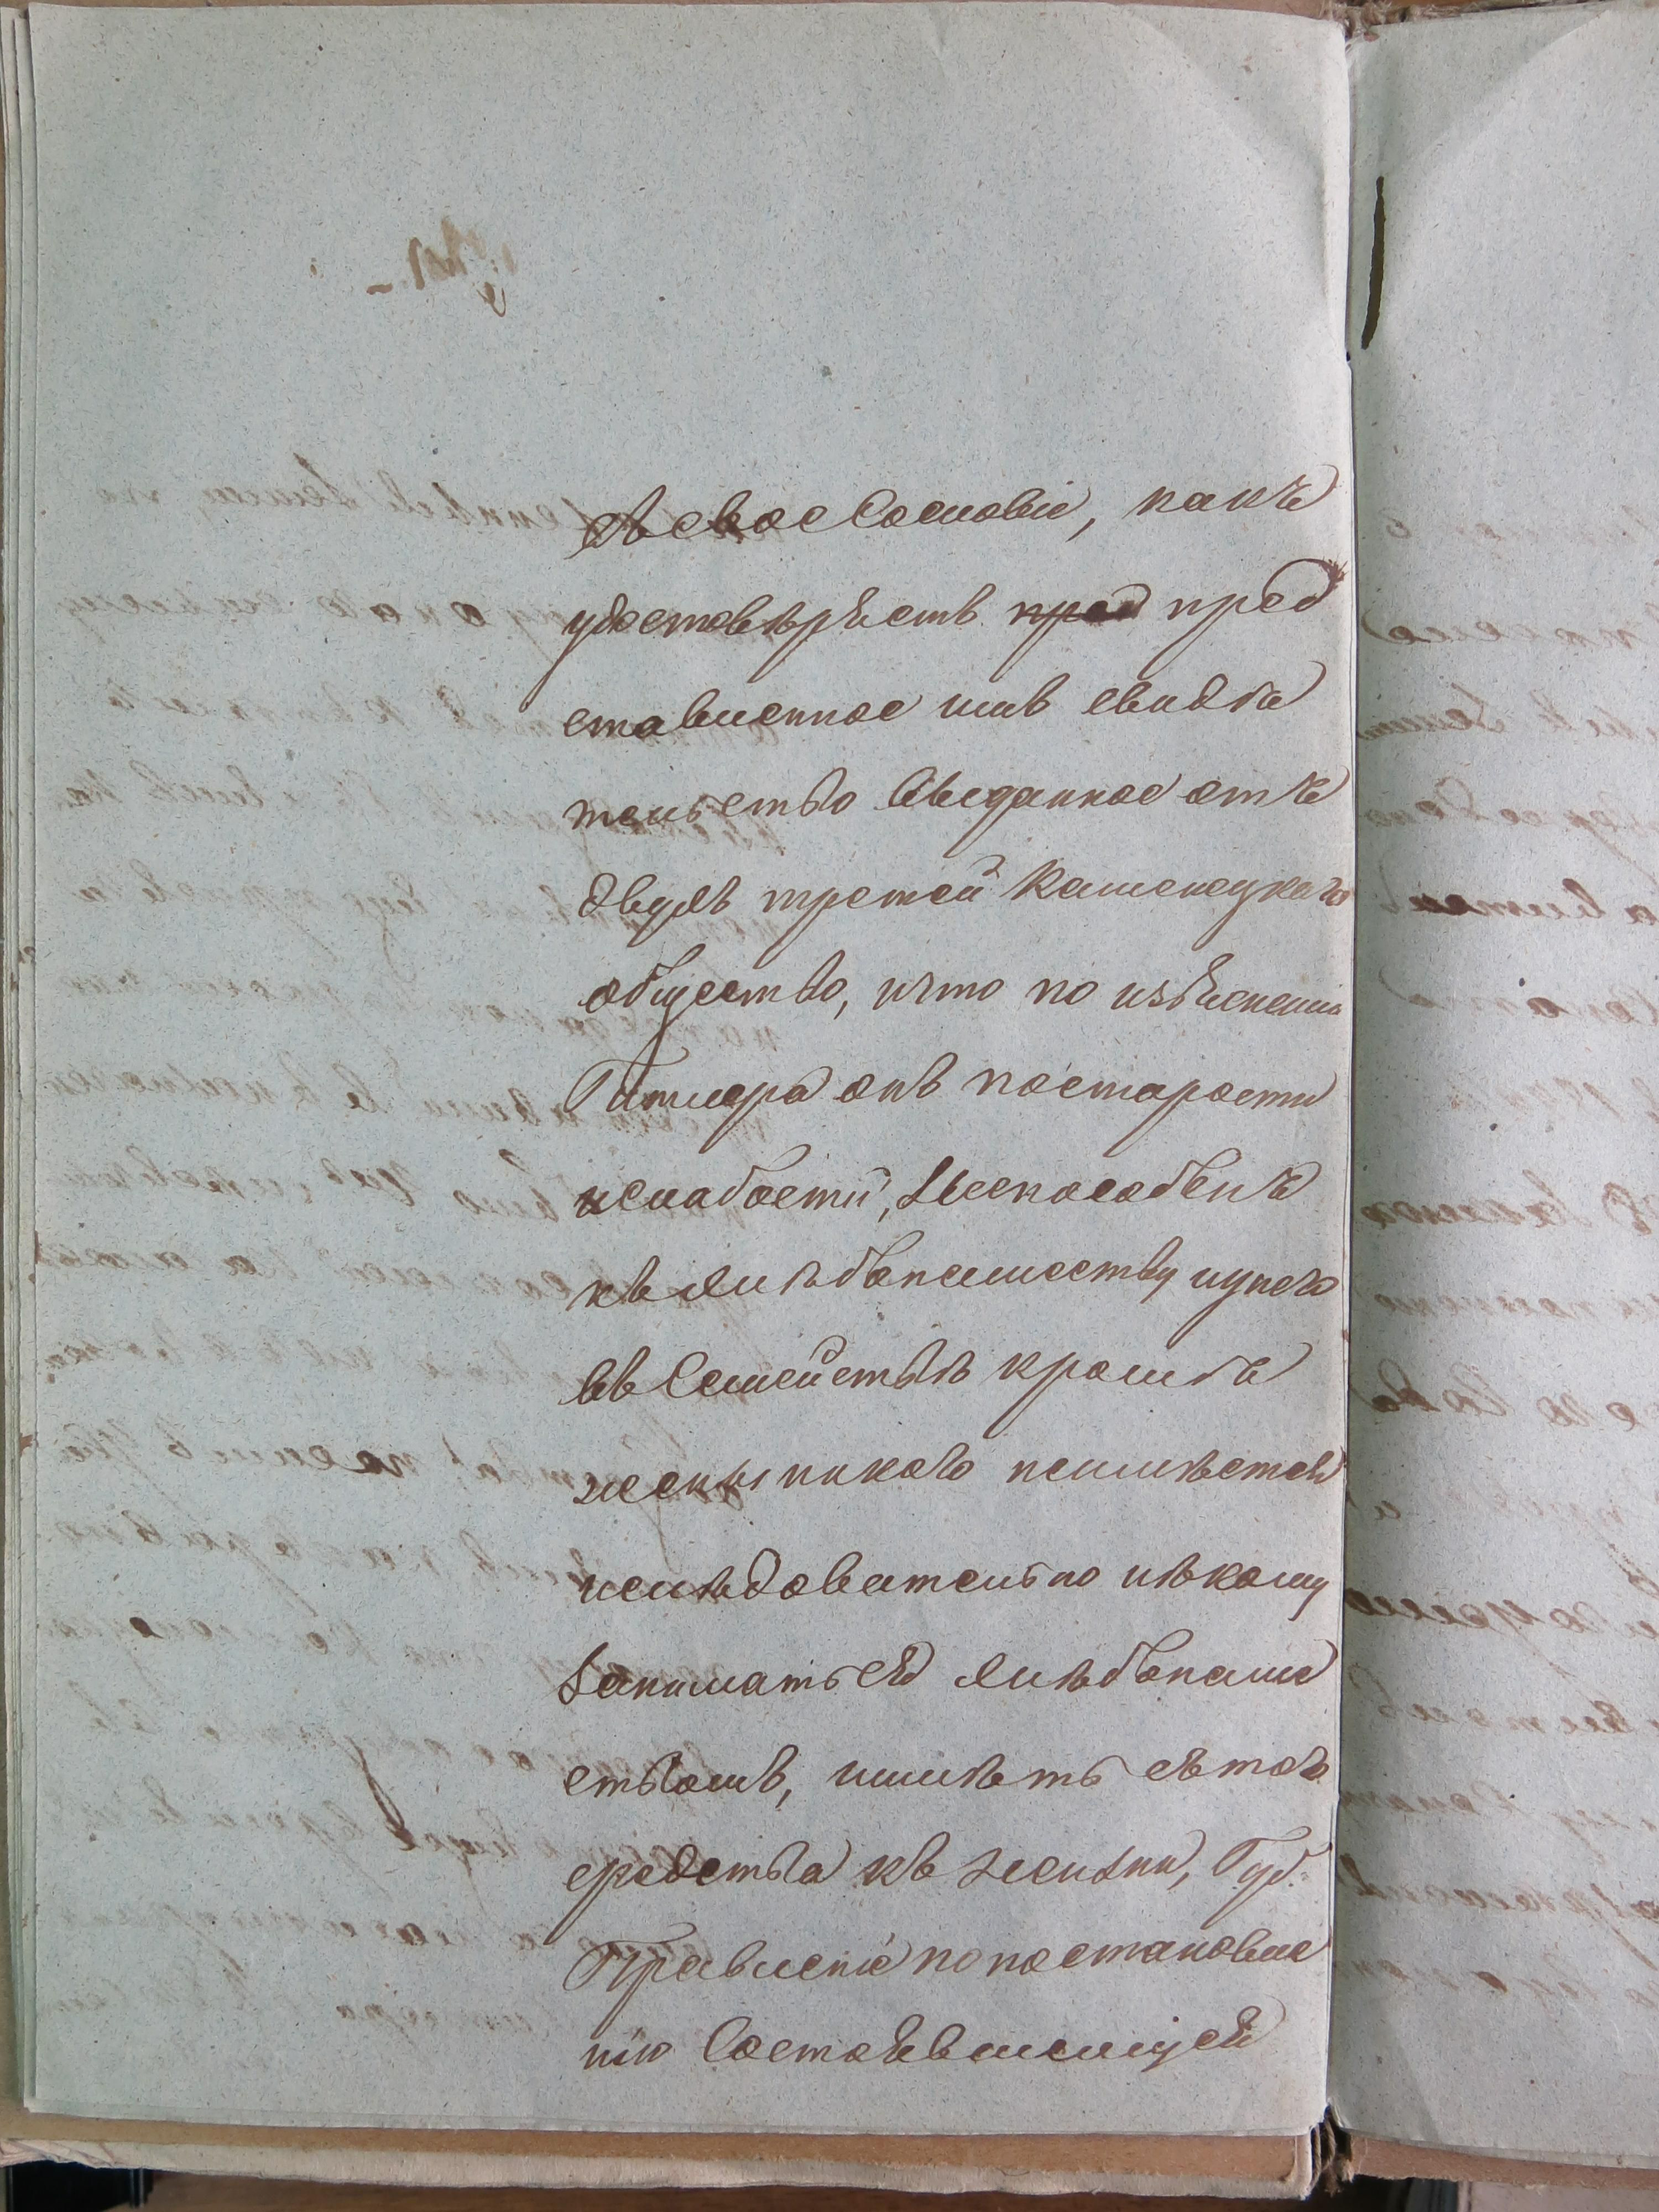 въ свое Сословіе, какъ
удостовѣряетъ пред пред
ставленное имъ свидѣ
тельство выданное отъ
двухъ третей Каменецкаго
общества, и что по изъясненію
Гитлера онъ по старости
и слабости, неспособенъ
къ хлѣбопашеству и у него
въ Семействѣ кромѣ
жены никого неимѣется
и слѣдовательно нѣкому
заниматься хлѣбопаше
ствомъ, и имѣть съ того
средства къ жизни, Губ:
Правленіе по постановле
нію Состоявшемуся